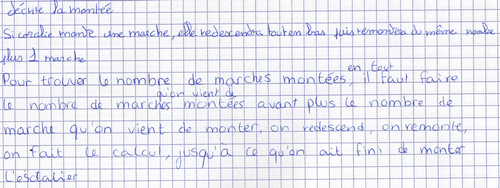 décrire la montée
Si coralie monte une marche, elle redescendra tout en bas puis remontera du même nombre
plus 1 marche
Pour trouver le nombre de marches montées en tout, il faut faire
le nombre de marches qu'on vient de montées avant plus le nombre de
marche qu'on vient de monter, on redescend, on remonte,
on fait le calcul, jusqu'a ce qu'on ait fini de monter
l'escalier